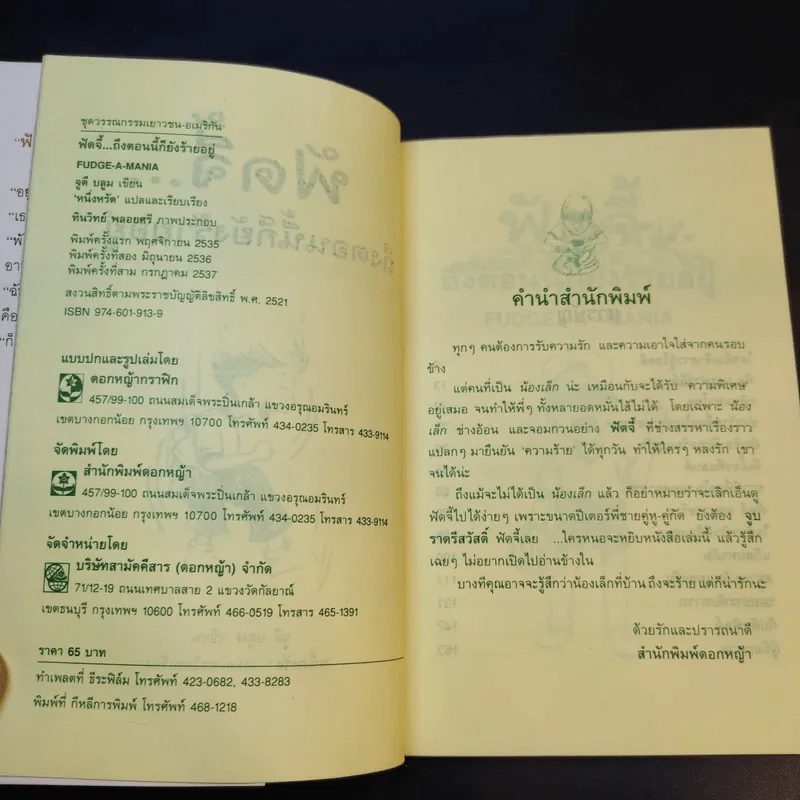 ชุดวรรณกรรมเยาวชน-อเมริกัน
ฟัดจี้...ถึงตอนนี้ก็ยังร้ายอยู่
FUDGE-A-MANIA
จูดี บลูม เขียน
'หนึ่งหรัด' แปลและเรียบเรียง
ทินวิทย์ พลอยศรี ภาพประกอบ
พิมพ์ครั้งแรก พฤศจิกายน 2535
พิมพ์ครั้งที่สอง มิถุนายน 2536
พิมพ์ครั้งที่สาม กรกฎาคม 2537
สงวนสิทธิ์ตามพระราชบัญญัติลิขสิทธิ์ พ.ศ. 2521
ISBN 974-601-913-9
แบบปกและรูปเล่มโดย
ดอกหญ้ากราฟิก
457/99-100 ถนนสมเด็จพระปิ่นเกล้า แขวงอรุณอมรินทร์
เขตบางกอกน้อย กรุงเทพฯ 10700 โทรศัพท์ 434-0235 โทรสาร 433-9114
จัดพิมพ์โดย
สำนักพิมพ์ดอกหญ้า
457/99-100 ถนนสมเด็จพระปิ่นเกล้า แขวงอรุณอมรินทร์
เขตบางกอกน้อย กรุงเทพฯ 10700 โทรศัพท์ 434-0235 โทรสาร 433-9114
จัดจำหน่ายโดย
บริษัทสามัคคีสาร (ดอกหญ้า) จำกัด
71/12-19 ถนนเทศบาลสาย 2 แขวงวัดกัลยาณ์
เขตธนบุรี กรุงเทพฯ 10600 โทรศัพท์ 466-0519 โทรสาร 465-1391
ราคา 65 บาท
ทำเพลตที่ ธีระฟิล์ม โทรศัพท์ 423-0682, 433-8283
พิมพ์ที่ กีหลีการพิมพ์ โทรศัพท์ 468-1218
คำนำสำนักพิมพ์
ทุกๆ คนต้องการรับความรัก และความเอาใจใส่จากคนรอบ
ข้าง
แต่คนที่เป็น น้องเล็ก น่ะ เหมือนกับจะได้รับ 'ความพิเศษ'
อยู่เสมอ จนทำให้พี่ๆ ทั้งหลายอดหมั่นไส้ไม่ได้ โดยเฉพาะ น้อง
เล็ก ช่างอ้อน และจอมกวนอย่าง ฟัดจี้ ที่ช่างสรรหาเรื่องราว
แปลกๆ มายืนยัน 'ความร้าย' ได้ทุกวัน ทำให้ใครๆ หลงรัก เขา
จนได้น่ะ
ถึงแม้จะไม่ได้เป็น น้องเล็ก แล้ว ก็อย่าหมายว่าจะเลิกเอ็นดู
ฟัดจี้ไปได้ง่ายๆ เพราะขนาดปีเตอร์พี่ชายคู่หู-คู่กัด ยังต้อง จูบ
ราตรีสวัสดิ์ ฟัดจี้เลย ...ใครหนอจะหยิบหนังสือเล่มนี้ แล้วรู้สึก
เฉยๆ ไม่อยากเปิดไปอ่านข้างใน
บางทีคุณอาจจะรู้สึกว่าน้องเล็กที่บ้าน ถึงจะร้าย แต่ก็น่ารักนะ
ด้วยรักและปรารถนาดี
สำนักพิมพ์ดอกหญ้า